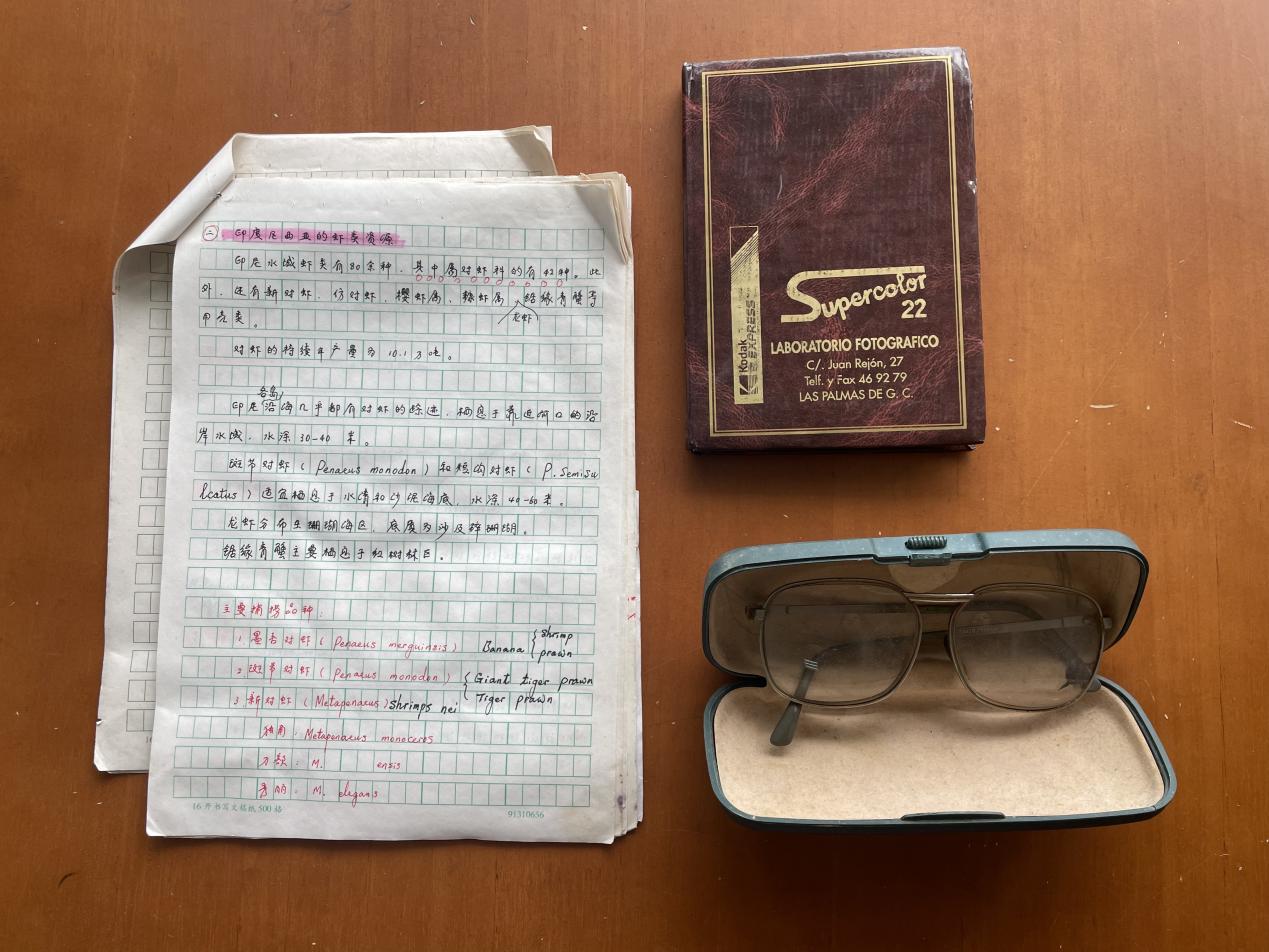 ㊁ 印度尼西亚的虾类资源
印尼水域虾类有80余种，其中属对虾科的有42种。此
外，还有新对虾、仿对虾、樱虾属、龙虾、锯缘青蟹等
甲壳类。
对虾的持续年产量为10.1万吨。
各岛
印尼沿海几乎都有对虾的踪迹，栖息于靠近河口的沿
岸水域，水深30-40米。
斑节对虾（Penaeus monodon）和短沟对虾（P. Semisu
lcatus）适宜栖息于水清和沙泥海底，水深40-60米。
龙虾分布在珊瑚海区，底质为沙及碎珊瑚。
锯缘青蟹主要栖息于红树林区。
主要捕捞品种：
1. 墨吉对虾（Penaeus merguinsis） Banana { shrimp
prawn
2. 斑节对虾（Penaeus monodon） { Giant tiger prawn
Tiger prawn
3. 新对虾（Metapenaeus）shrimps nei
独角：Metapenaeus monoceros
刀额：M. ensis
秀丽：M. elegans
16开书写文稿纸500格
91310656
Supercolor
22
Kodak
EXPRESS
LABORATORIO FOTOGRAFICO
C/. Juan Rejón, 27
Telf. y Fax 46 92 79
LAS PALMAS DE G. C.